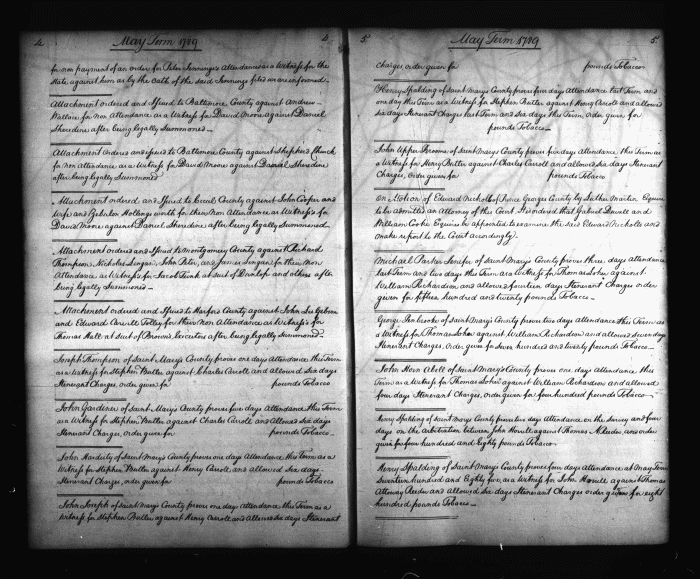 4. May Term 1789 4.
for non payment of an order for Peter Jennings's Attendance as a Witness for the
State against him as by the Oath of the said Jennings filed more informed.
Attachment ordered and Issued to Baltimore County against Andrew
Wallace for non Attendance as a Witness for David Moore against Daniel
Sheredine after being legally Summoned
Attachment ordered and issued to Baltimore County against Shepherd Church
for non attendance as a Witness for David Moore against Daniel Sheredine
after being legally Summoned
Attachment ordered and Issued to Cecil County against John Cooper and
wife and Zebulon Hollingsworth for their non Attendance as Witness's for
David Moore against Daniel Sheredine after being legally Summoned
Attachment ordered and Issued to Montgomery County against Richard
Thompson, Nicholas Lingan, John Peter, and James Lingan for their non
Attendance as Witness's for Jacob Funk at suit of Dunlop and others after
being legally Summoned
Attachment ordered and Issued to Harford County against John Lee
and Edward Carvill Tolley for their non Attendance as Witness's for
Thomas Hall at suit of Brown's Executors after being legally Summoned
Joseph Thompson of Saint Mary's County proves one days Attendance this Term
as a Witness for Stephen Butler against Charles Carroll and allowed Six days
Itenerant Charges, order given for pounds Tobacco
John Gardiner of Saint Mary's County proves five days Attendance this Term
as a Witness for Stephen Butler against Charles Carroll and Allowed Six days
Itenerant Charges, order given for pounds Tobacco
John Hardesty of Saint Mary's County proves one days Attendance, this term as a
Witness for Stephen Butler against Henry Carroll and allowed Six days
Itenerant Charges, order given for pounds Tobacco
John Joseph of Saint Mary's County proves one days attendance this Term as a
Witness for Stephen Butler against Henry Carroll and Allowed Six days Itenerant
5 May Term 1789 5.
charges, order given for pounds Tobacco
Henry Spalding of Saint Mary's County proves five days Attendance last Term and
one day this Term as a Witness for Stephen Butler against Henry Carroll and allowed
Six days Itenerant Charges last Term and Six days this Term, Order given for
pounds Tobacco
John Upper Broome of Saint Mary's County proves five days Attendance, this Term as
a Witness for Henry Butler against Charles Carroll and allowed Six days Itenerant
Charges, Order given for pounds Tobacco
On Motion of Edward Nicholls of Prince Georges County by Luther Martin Esquire
to be admitted an Attorney of this Court. It is ordered that Gabriel Duvall and
William Cooke Esquires be appointed to examine the said Edward Nicholls and
make report to the Court accordingly.
Michael Parker of Saint Mary's County proves three days attendance
last Term and two days this Term as a Witness for Thomas John against
William Richardson and allowed fourteen days Itenerant Charges order
given for fifteen hundred and twenty pounds Tobacco
George of Saint Mary's County proves two days attendance this Term as
a Witness for Thomas John against William Richardson and allowed seven days
Itenerant Charges, Order given for Seven hundred and twenty pounds Tobacco
John Horn Abell of Saint Mary's County proves one day Attendance, this
Term as a Witness for Thomas John against William Richardson and allowed
four days Itenerant Charges, order given for four hundred pounds Tobacco
Henry Spalding of Saint Mary's County proves two days attendance on the Survey and four
days on the arbitration between John Howell against Thomas A. Reeder, an order
given for four hundred and Eighty pounds Tobacco
Henry Spalding of Saint Mary's County proves four days Attendance at May Term
Seventeen hundred and Eighty five, as a Witness for John Howell against Thomas
Attaway Reeder and Allowed Six days Itenerant Charges order given for Eight
hundred pounds Tobacco